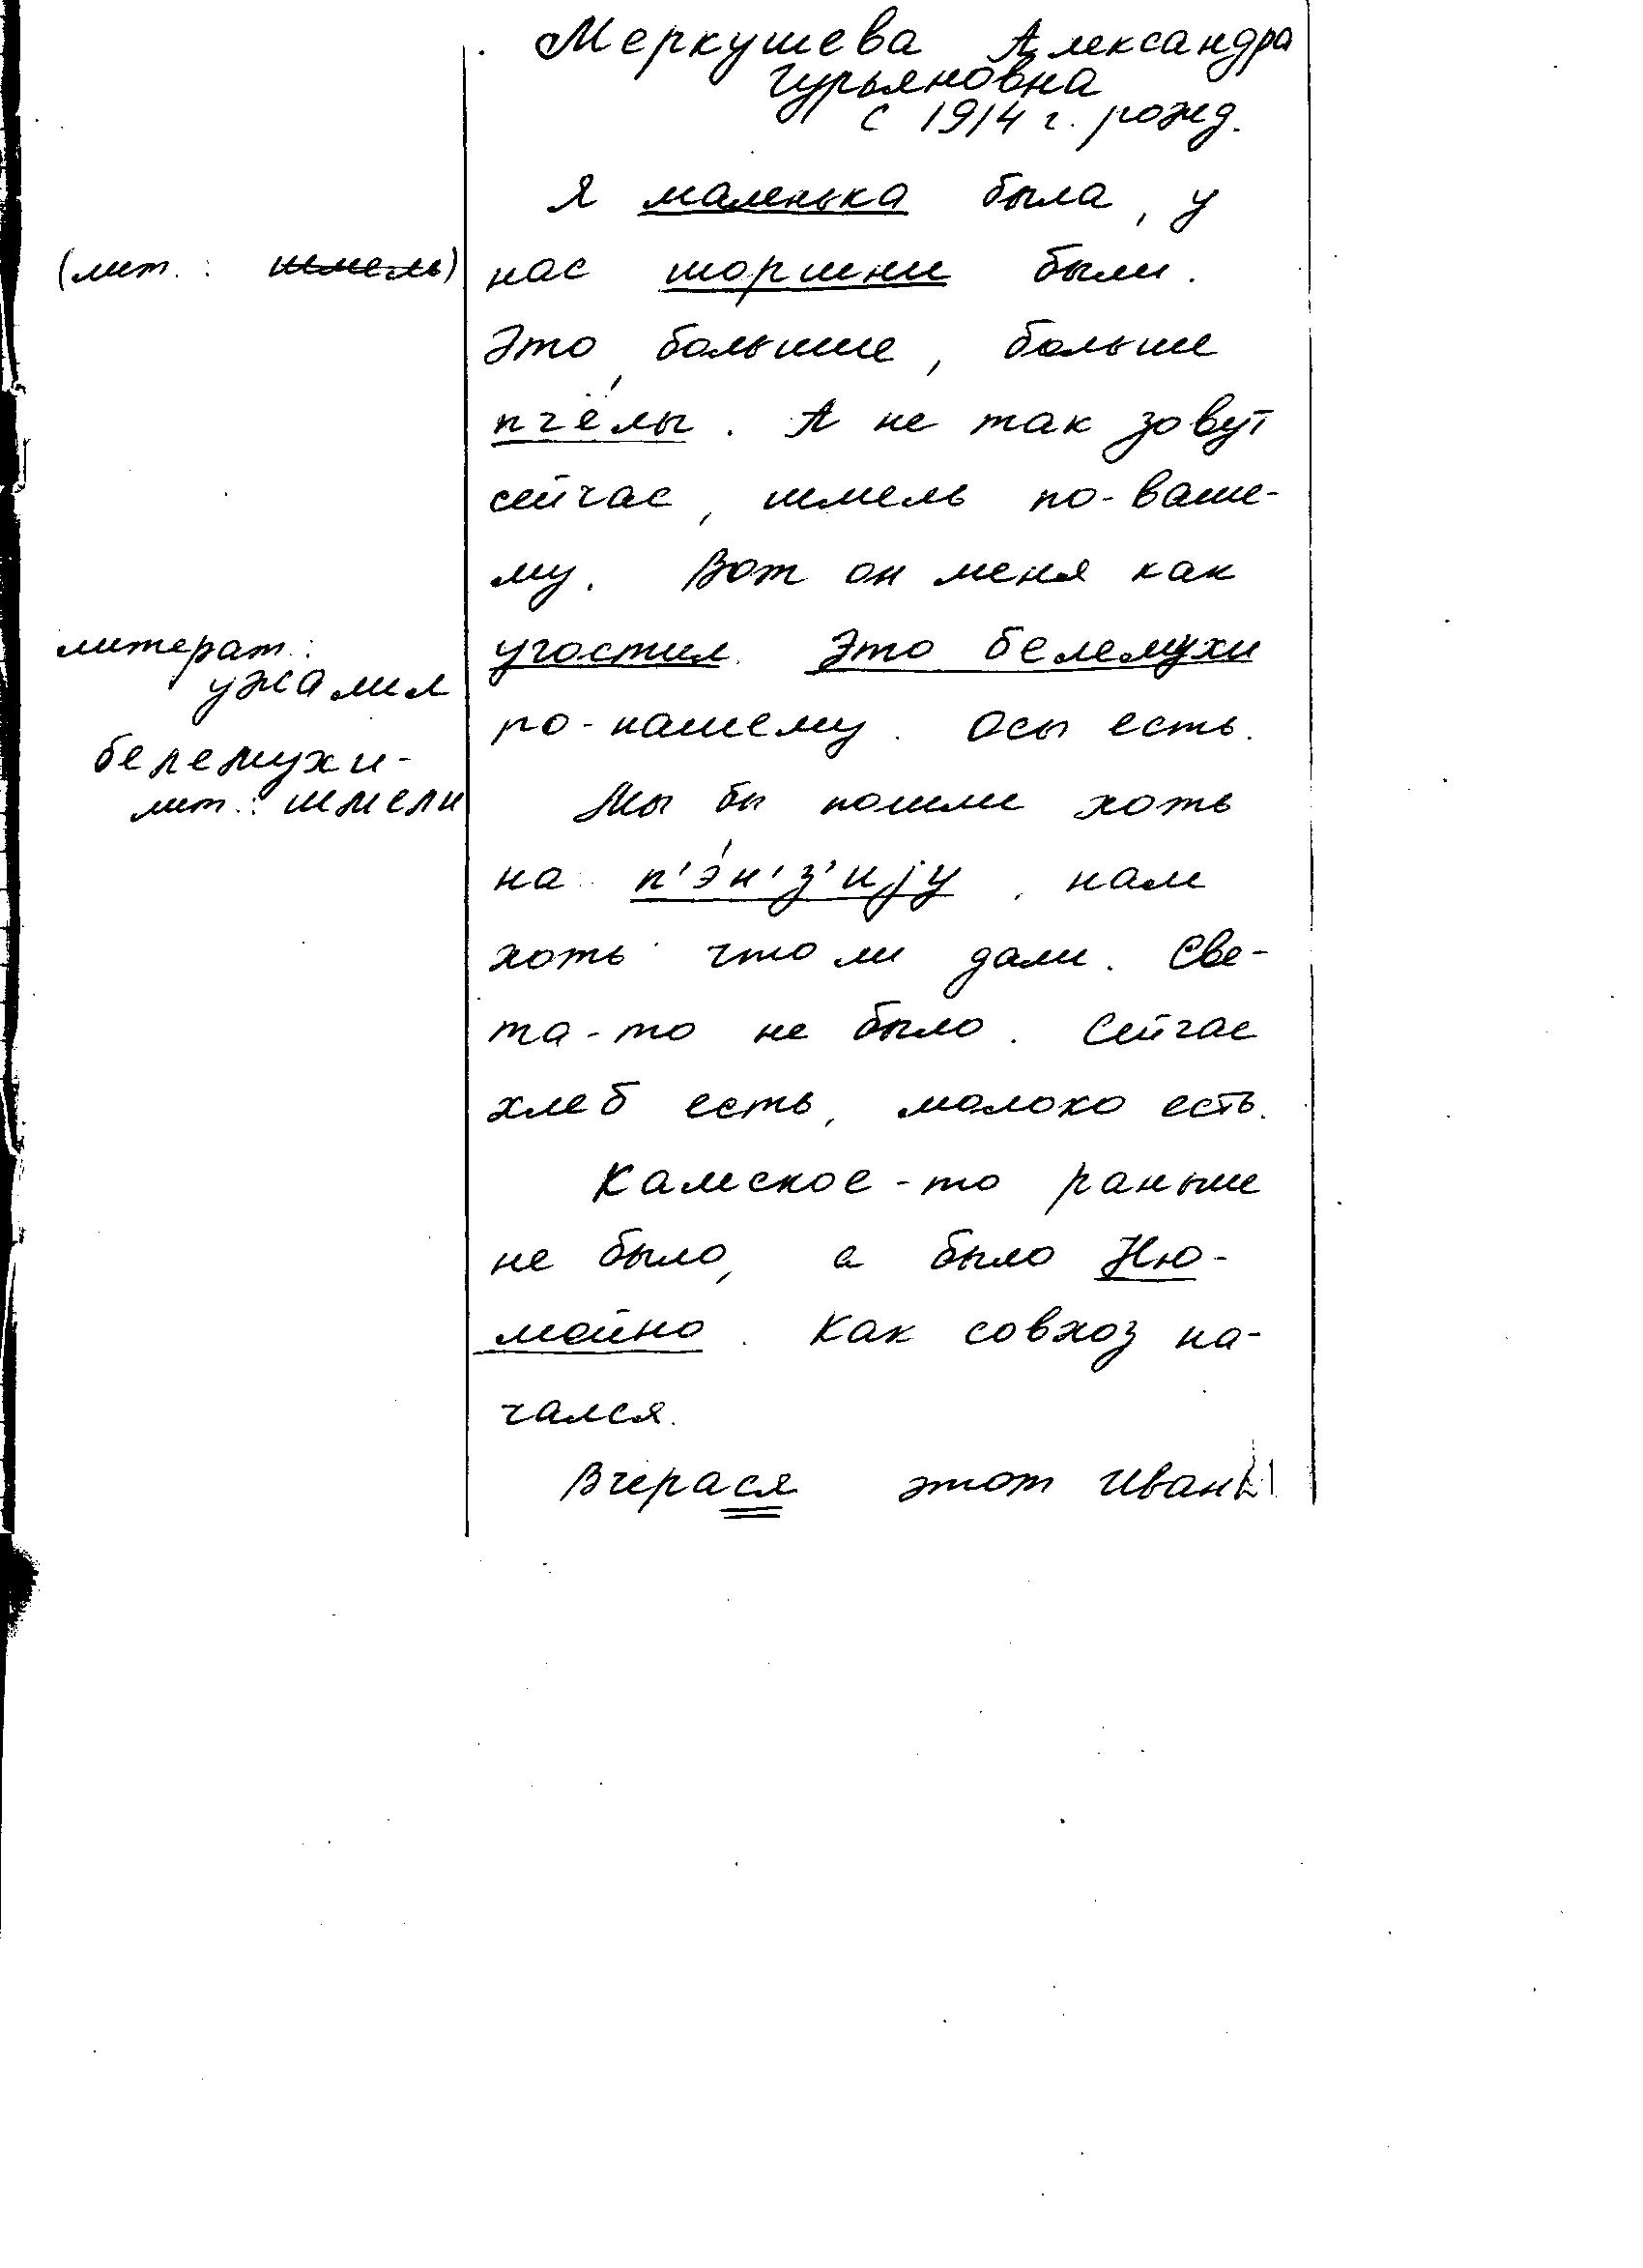 Меркушева Александра
Гурьяновна
с 1914 г. рожд.
Я маленька была, у
(лит.: шмель) нас шоршни были.
Это больше, больше
пчёлы. А не так зовут
сейчас, шмель по-ваше-
му. Вот он меня как
литерат.: угостил. Это белемухи
ужалил
по-нашему. Осы есть.
белемухи-
лит.: шмели
Мы бы пошли хоть
на п'э́н'з'иjу, нам
хоть что ли дали. Све-
та-то не было. Сейчас
хлеб есть, молоко есть.
Камское-то раньше
не было, а было Ню-
мойно. Как совхоз на-
чался.
Вчерася этот Иван